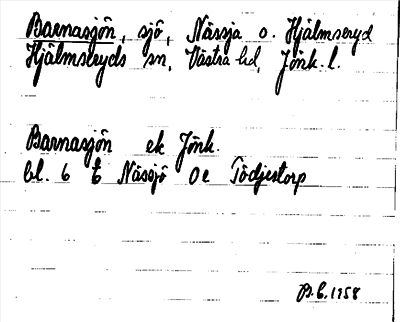 Barnasjön, sjö, Nässja o. Hjälmseryd
Hjälmseryds sn, Västra hd, Jönk. l.
Barnasjön ek Jönk.
bl. 6 t Nässjö Oe Tödjestorp
B.C. 1958